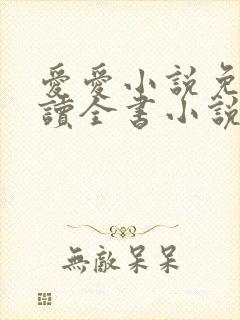 愛愛小說免
讀全書小說
無敵呆呆